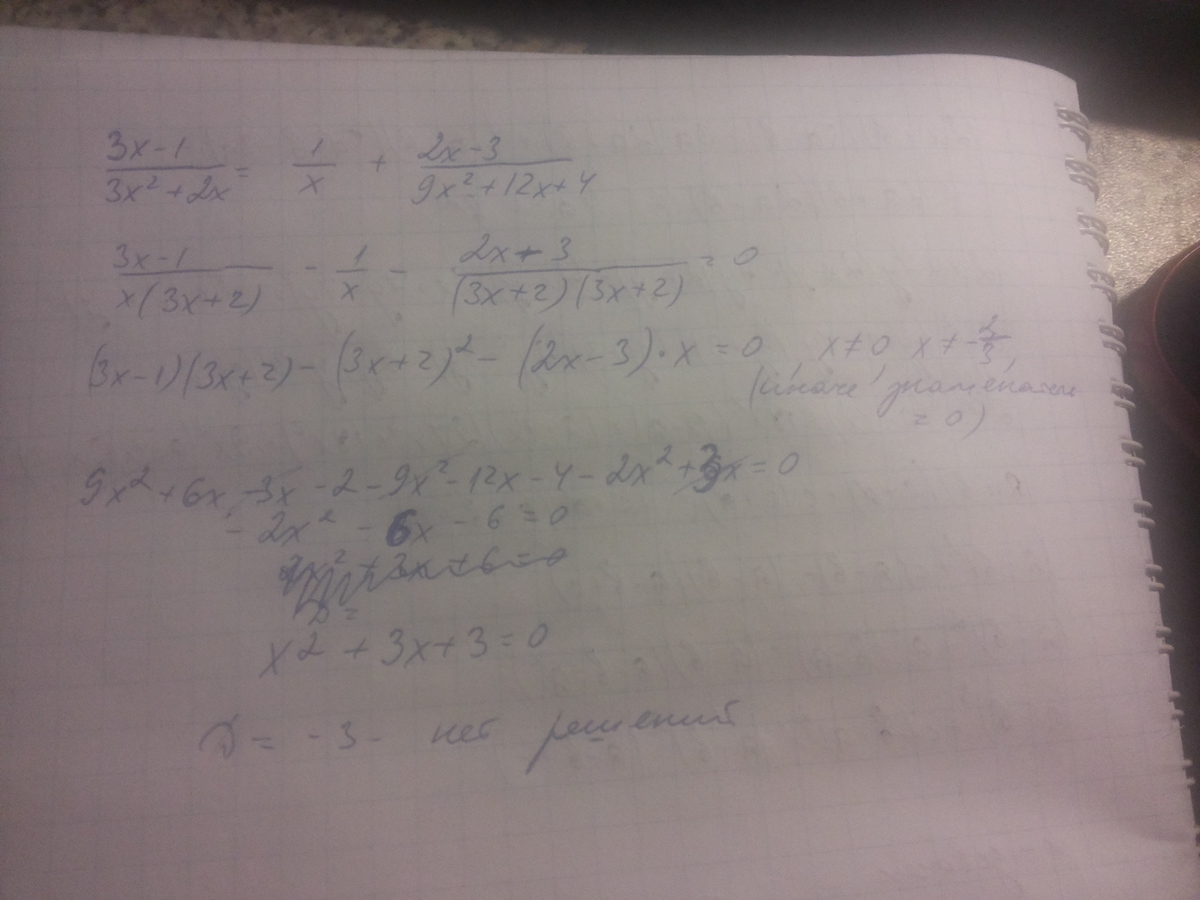 (3x-1)/(3x²+2x) = 1/x + (2x-3)/(9x²+12x+4)
(3x-1)/(x(3x+2)) - 1/x - (2x-3)/((3x+2)(3x+2)) = 0
(3x-1)(3x+2) - (3x+2)² - (2x-3)·x = 0, x≠0, x≠-2/3,
(иначе знаменатель
= 0)
9x²+6x-3x-2-9x²-12x-4-2x²+3x=0
-2x² - 6x - 6 = 0
x²+3x+3=0
D = -3 - нет решений